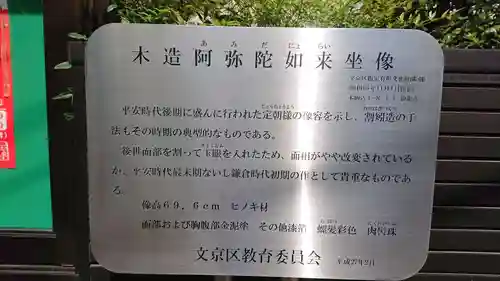 木造阿弥陀如来坐像
あみだにょらい
平安時代後期に盛んに行われた定朝様の像容を示し、割矧造の手
法もその時期の典型的なものである。
後世面部を割って玉眼を入れたため、面相がやや改変されている
が、平安時代最末期ないし鎌倉時代初期の作として貴重なものであ
る。
像高69.6cm ヒノキ材
面部および胸腹部金泥塗 その他漆箔 螺髪彩色 肉髻珠
文京区教育委員会